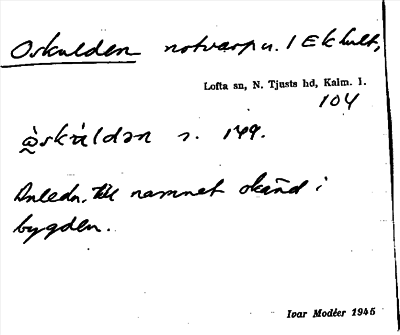 Oskulden notvarp u. 1 Ekhult,
Lofta sn, N. Tjusts hd, Kalm. l.
104
s. 149.
Anledn. till namnet okänd i
bygden.
Ivar Modéer 1945